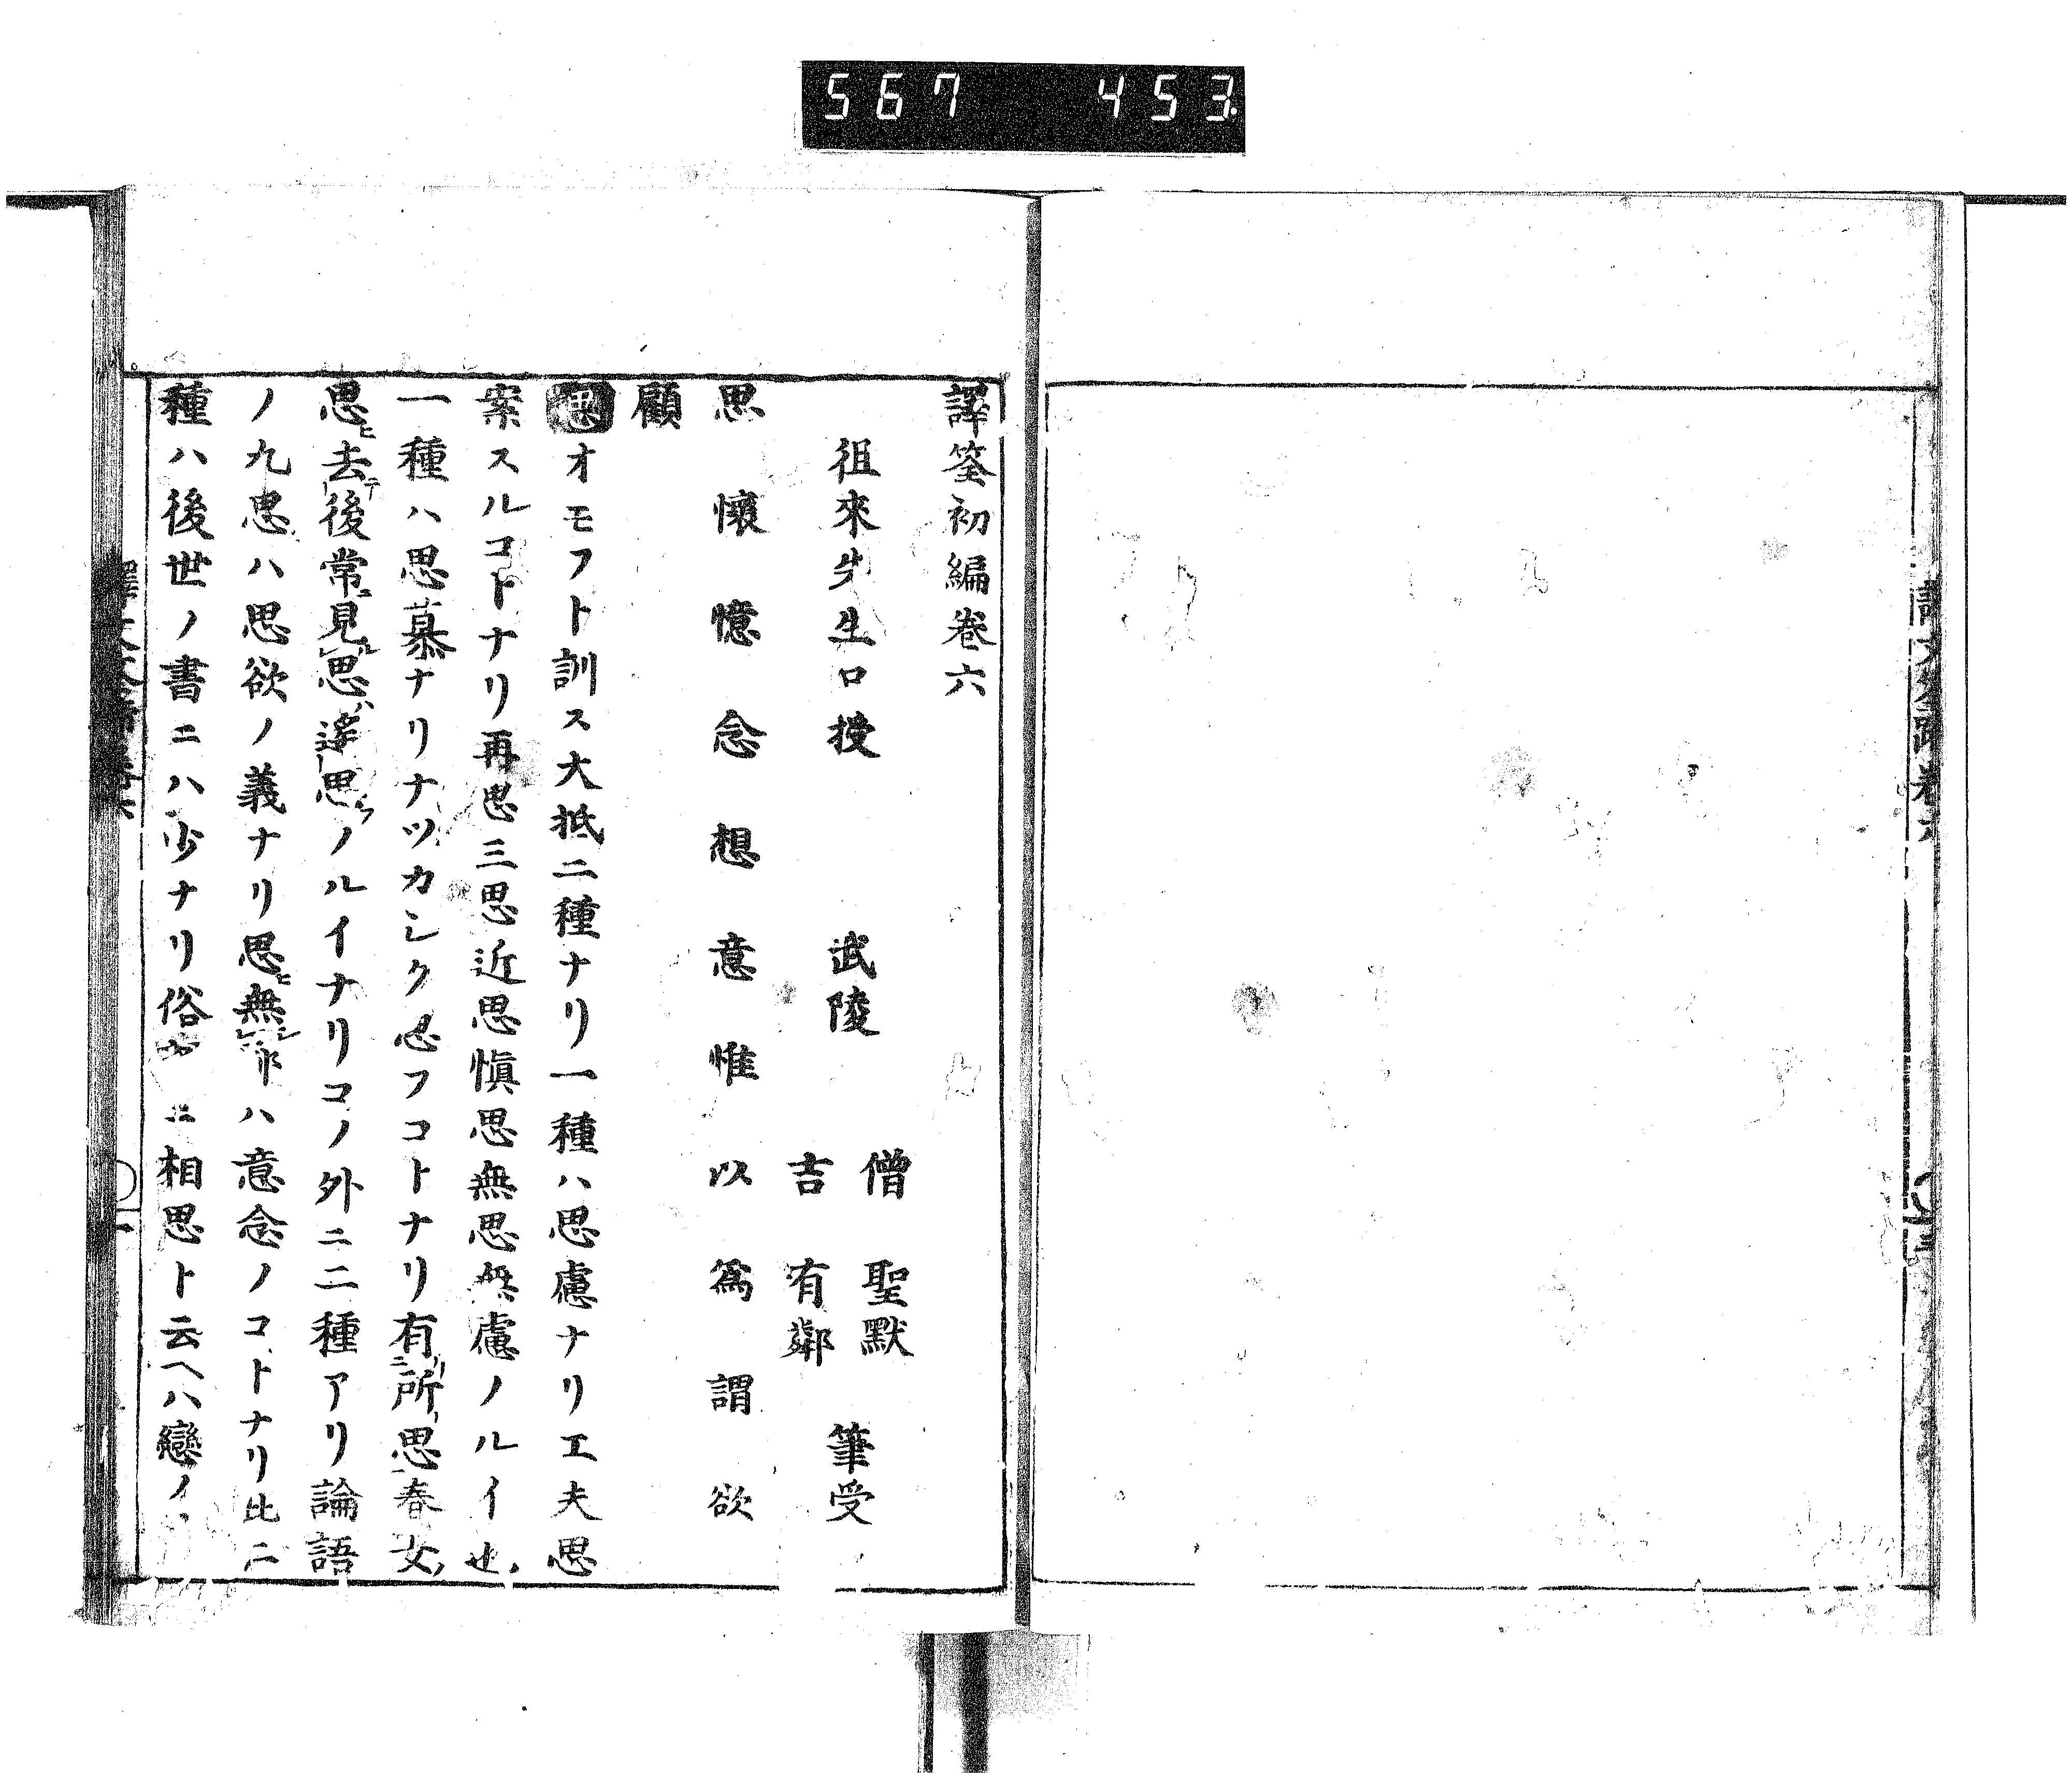 567 453
譯筌初編卷六
徂來先生口授 武陵 僧 聖默 筆受
吉 有鄰
思 懷 憶 念 想 意 惟 以 爲 謂 欲
顧
思オモフト訓ス大抵二種ナリ一種ハ思慮ナリ工夫思
案スルコトナリ再思三思近思愼思無思無慮ノルイ也
一種ハ思慕ナリナツカシク思フコトナリ有所思春女
思去後常見思遙思ノルイナリコノ外ニ二種アリ論語
ノ九思ハ思欲ノ義ナリ思無邪ハ意念ノコトナリ此二
種ハ後世ノ書ニハ少ナリ俗ニ相思ト云ヘハ戀ノ